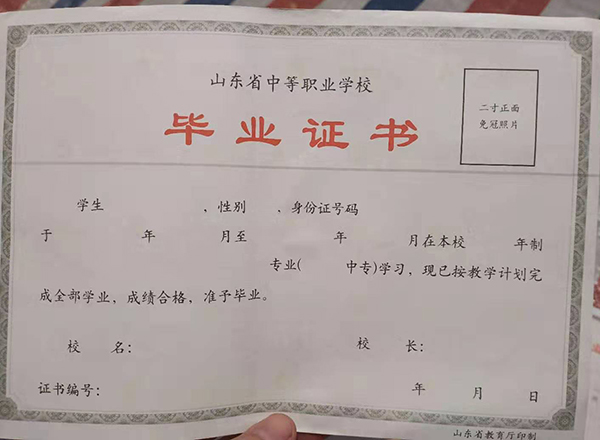 山东省中等职业学校
毕业证书
二寸正面
免冠照片
学生 、性别 、身份证号码
于 年 月至 年 月在本校 年制
专业( 中专)学习，现已按教学计划完
成全部学业，成绩合格，准予毕业。
校 名： 校 长：
证书编号： 年 月 日
山东省教育厅印制